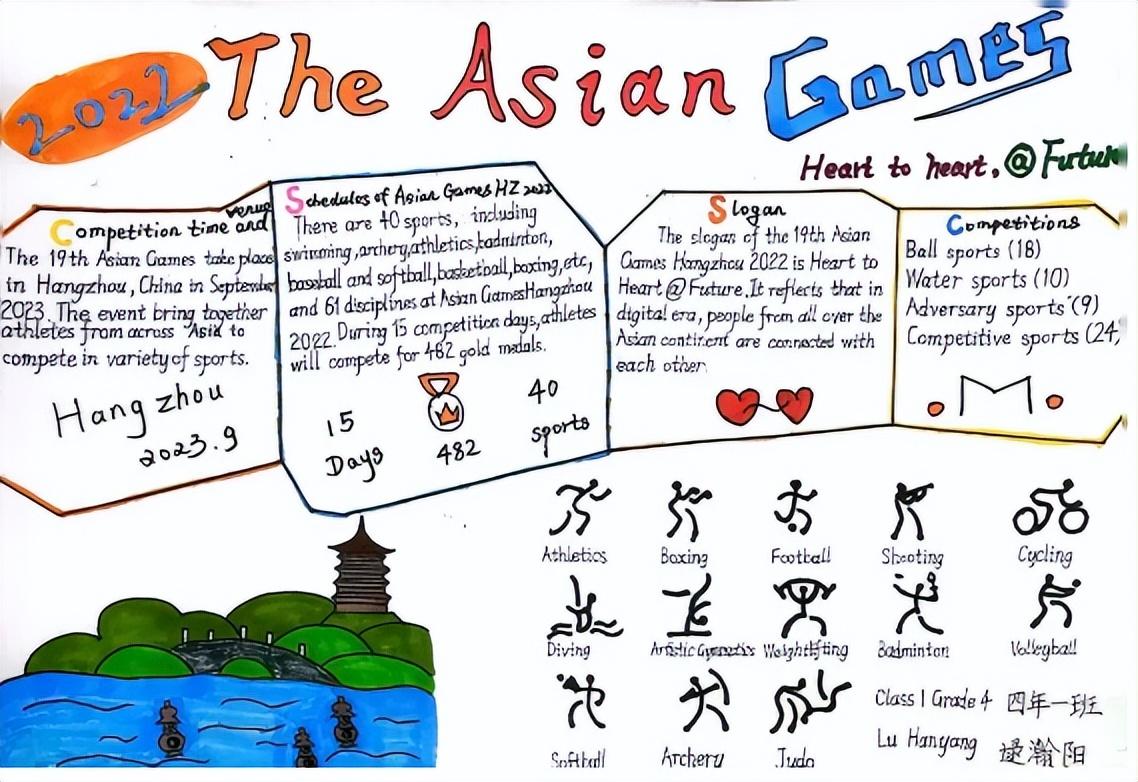 2022 The Asian Games
Heart to heart, @Futur
Competition time and venue
The 19th Asian Games take place
in Hangzhou, China in September
2023. The event bring together
athletes from across "Asia to
compete in variety of sports.
Hangzhou
2023.9
Schedules of Asian Games HZ 2022
There are 40 sports, including
swimming, archery, athletics, badminton,
baseball and softball, basketball, boxing, etc,
and 61 disciplines at Asian Games Hangzhou
2022. During 15 competition days, athletes
will compete for 482 gold medals.
15
Days
482
40
sports
Slogan
The slogan of the 19th Asian
Games Hangzhou 2022 is Heart to
Heart @ Future. It reflects that in
digital era, people from all over the
Asian continent are connected with
each other.
Competitions
Ball sports (18)
Water sports (10)
Adversary sports (9)
Competitive sports (24,
Athletics Boxing Football Shooting Cycling
Diving Artistic Gymnastics Weightlifting Badminton Volleyball
Softball Archery Judo
Class 1 Grade 4 四年一班
Lu Hanyang 逯瀚阳